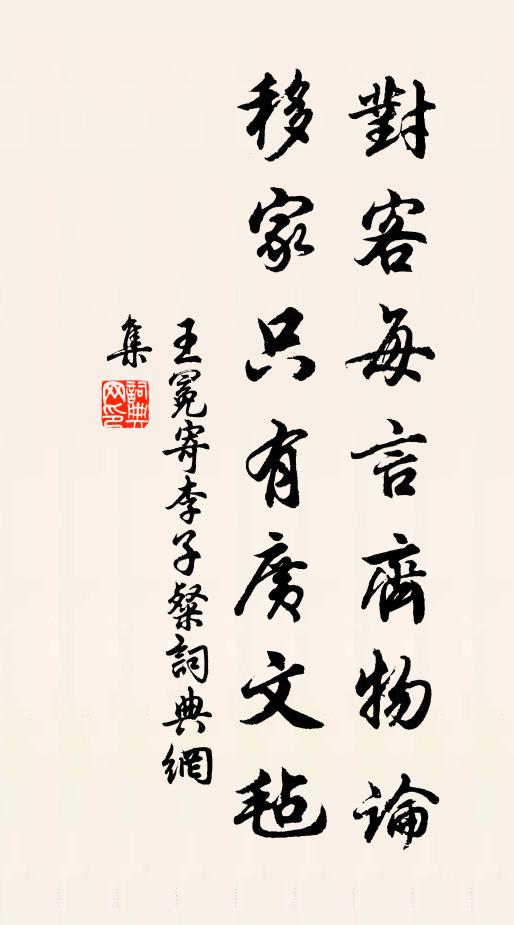 對客每言齊物論
移家只有廣文毡
王冕寄李子粲詞典網
集
詞典网印